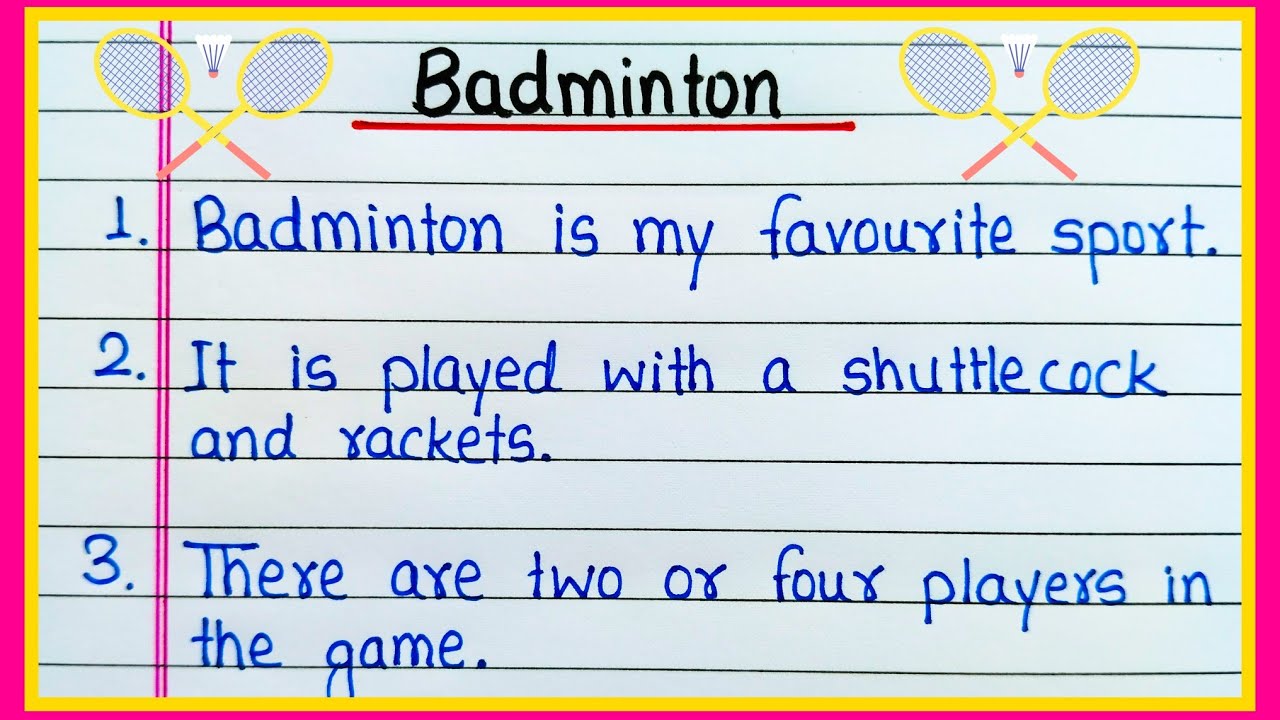 Badminton
1. Badminton is my favourite sport.
2. It is played with a shuttlecock
and rackets.
3. There are two or four players in
the game.